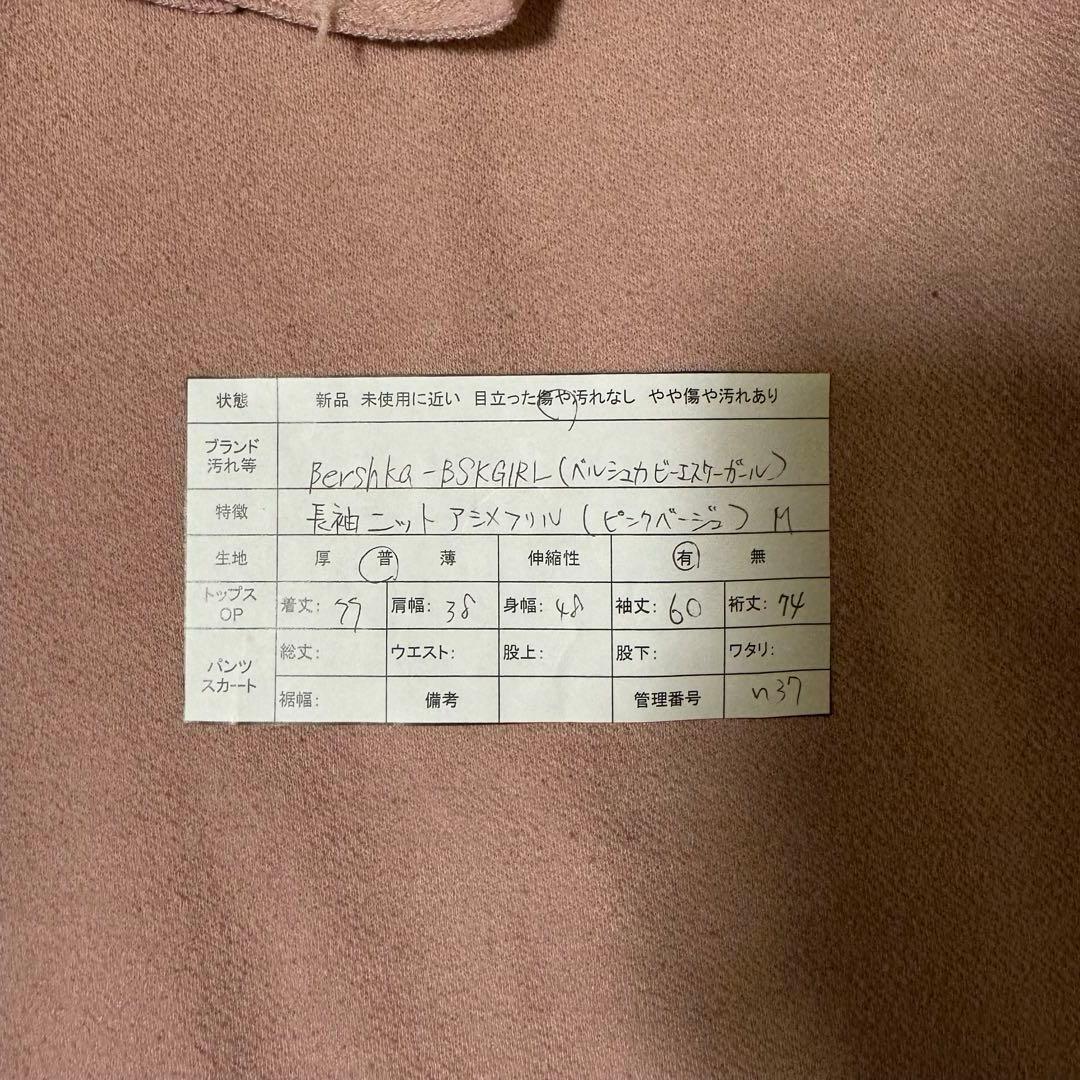 状態 新品 未使用に近い 目立った傷や汚れなし やや傷や汚れあり
ブランド
汚れ等 Bershka-BSKGIRL(ベルシュカ ビーエスケーガール)
特徴 長袖 ニット アシメフリル (ピンクベージュ) M
生地 厚 普 薄 伸縮性 有 無
トップス
OP 着丈: 肩幅: 38 身幅: 48 袖丈: 60 裄丈: 74
パンツ
スカート 総丈: ウエスト: 股上: 股下: ワタリ:
裾幅: 備考 管理番号 n37